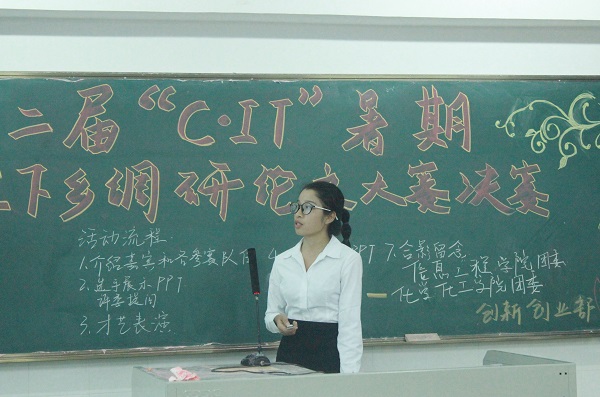 二届“C·IT”暑期
下乡调研论文大赛决赛
活动流程
1.介绍嘉宾和各参赛队伍
2.选手展示PPT
评委提问
3.才艺表演
4
PT
7.合影留念
信息工程学院团委
化学化工学院团委
创新创业部